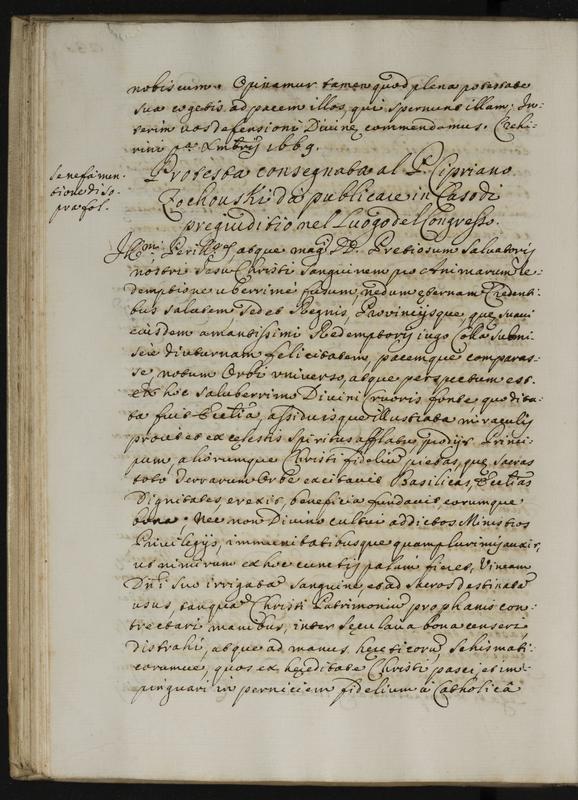 nobiscum. Opinamur tamen quod plena potestate
sua cogetis ad pacem illos, qui spernunt illam; In-
terim vos defensioni Divinę commendamus. Czehi-
rini Xmbrij 1669.
Protesta consegnata al P. Cipriano
Zochouski dà publicare in Caso di
pregiuditio nel Luogo del Congresso.
se ne fà men-
tione di so-
pra fol.
atque mag. DD. Pretiosum Saluatoris
nostri Jesu Christi Sanguinem pro Animarum re-
demptione uberrimè fusum, nedum ęternam Credenti-
bus Salutem sed et Regnis, Provincijsque, quę suaui
eiusdem amantissimi Redemptoris iugo Colla submi-
sere diuturnam felicitatem, pacemque comparas-
se notum Orbi vniverso, atque perspectum est.
ex hoc saluberrimo Divini cruoris fonte, quo dita-
ta fuit Ecclia, assiduisque illustrata miraculis
provibet ex cęlestis Spiritus afflatu prodijt Princi-
pum, aliorumque Christi fidelium pietas, quę Sacras
toto Terrarum Orbe excitauit Basilicas, Ecclias
Dignitates, erexit, beneficia fundauit eorumque
bona, Nec non Divino cultui addictos Ministros
Privilegijs, immunitatibusque quamplurimis auxit,
ut nimirum ex hoc cunctis palam fieret, Vineam
Dñi Suo irrigatã Sanguine, et ad Sacros destinatã
usus, tanquã Christi Patrimonium prophanis con-
trectari manibus, inter Sęcularia bona censeri,
distrahi, atque ad manus hęreticorũ, Schismati-
corumue, quos ex hęreditate Christi pasci, et im-
pinguari in perniciem fidelium à Catholicâ